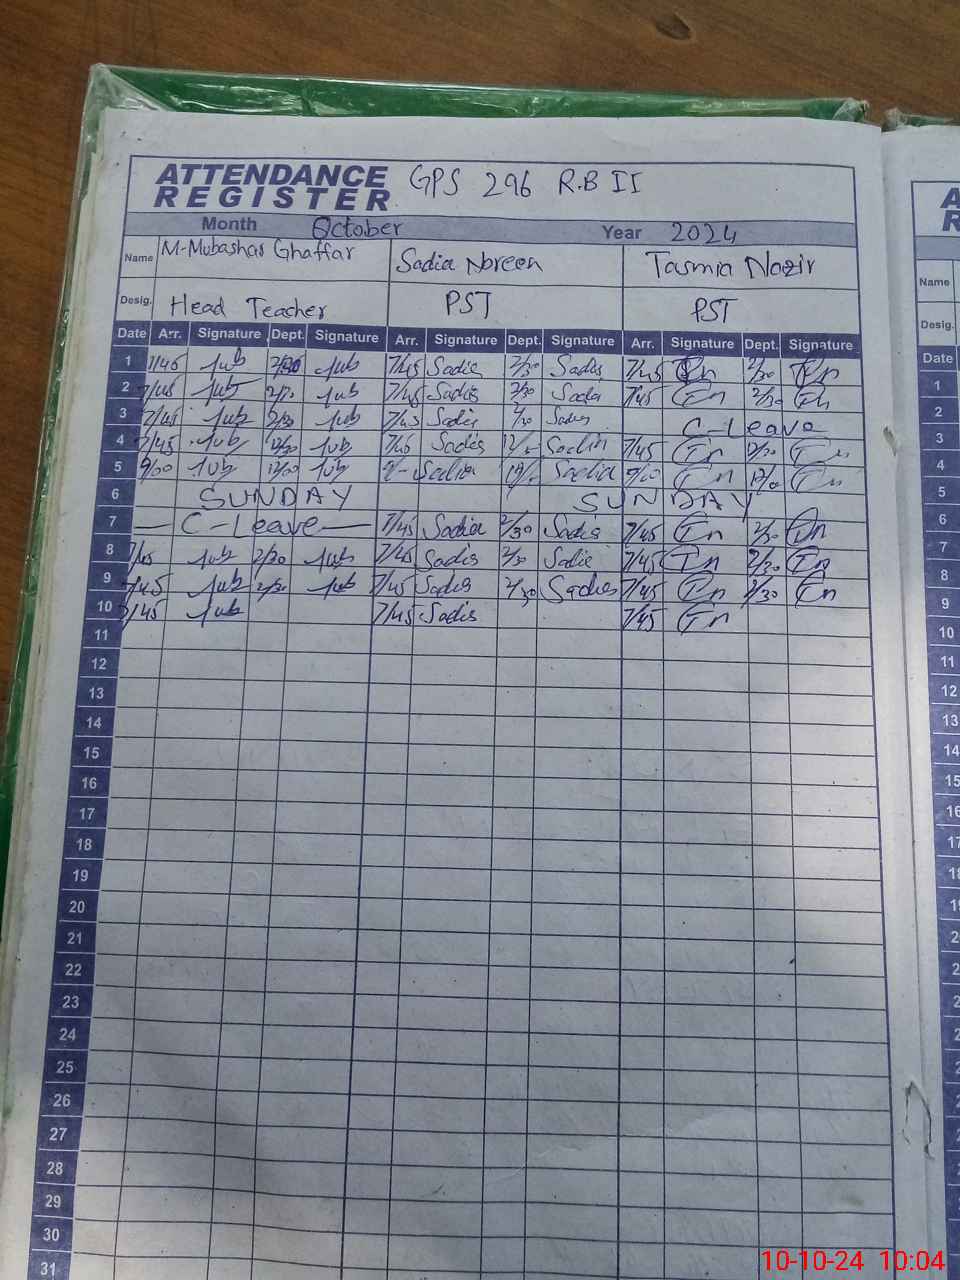 ATTENDANCE REGISTER GPS 296 R.B II
Month October Year 2024
Name M-Mubashar Ghaffar Sadia Noreen Tasmia Nazir
Desig. Head Teacher PST PST
Date Arr. Signature Dept. Signature Arr. Signature Dept. Signature Arr. Signature Dept. Signature
1 7/45 2/30 7/45 Sadia 2/30 Sadia 7/45 Tn 2/30 Tn
2 7/45 2/30 7/45 Sadia 2/30 Sadia 7/45 Tn 2/30 Tn
3 7/45 2/30 7/45 Sadia 2/30 Sadia C-Leave
4 7/45 12/30 7/45 Sadia 12/ Sadia 7/45 Tn 12/30 Tn
5 9/00 12/00 9/- Sadia 12/ Sadia 9/00 Tn 12/00 Tn
6 SUNDAY SUNDAY
7 C-Leave 7/45 Sadia 2/30 Sadia 7/45 Tn 2/30 Tn
8 7/45 2/30 7/45 Sadia 2/30 Sadia 7/45 Tn 2/30 Tn
9 7/45 2/30 7/45 Sadia 2/30 Sadia 7/45 Tn 2/30 Tn
10 7/45 7/45 Sadia 7/45 Tn
11
12
13
14
15
16
17
18
19
20
21
22
23
24
25
26
27
28
29
30
31
Name
Desig.
Date
1
2
3
4
5
6
7
8
9
10
11
12
13
14
15
16
17
10-10-24 10:04